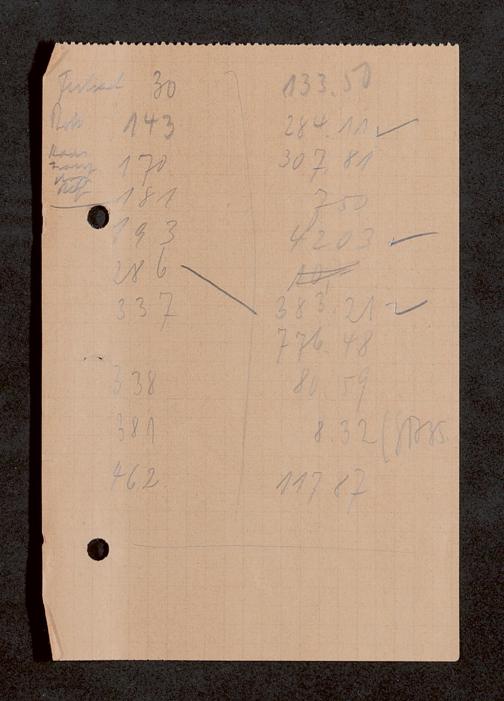 30 133.50
143 284.11
170 307.81
181 750
193 4203
286
337 383.21
776.48
338 80.59
381 8.32
462 117.87